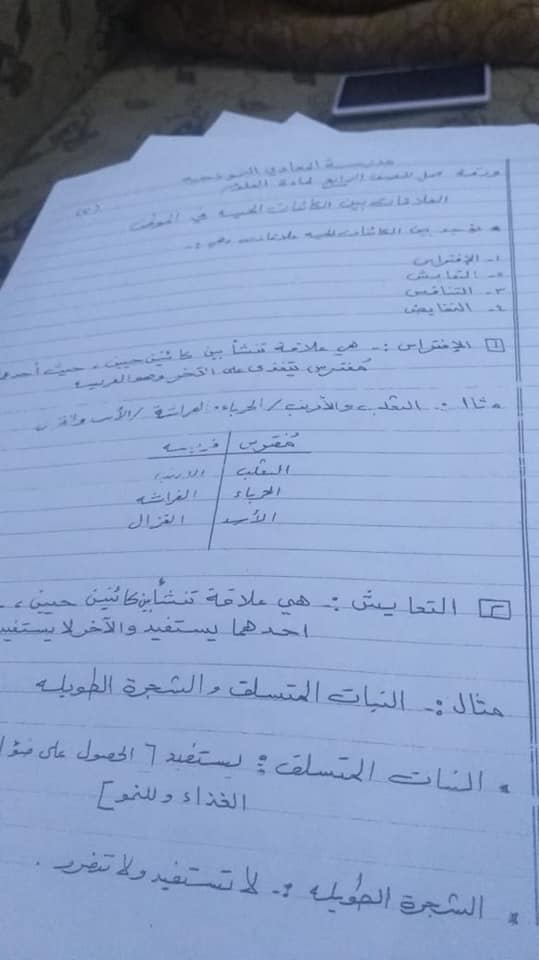 مدرسة المعادى النموذجية
ورقة عمل للصف الرابع لمادة العلوم
العلاقات بين الكائنات الحية في الموطن
(٢)
* يوجد بين الكائنات الحية علاقات وهى :-
١- الإفتراس
٢- التعايش
٣- التنافس
٤-
١ الإفتراس :- هي علاقة تنشأ بين كائنين حيين ، حيث أحدهما
مُفترس يتغذى على الآخر وهو الفريسة
* مثال :- الثعلب والأرنب / الحرباء والفراشة / الأسد
مُفترس فريسه
الثعلب الارنب
الحرباء الفراشه
الأسد الغزال
٢ التعايش :- هي علاقة تنشأ بين كائنين حيين ،
احدهما يستفيد والآخر لا يستفيد
مثال :- النبات المتسلق والشجرة الطويله
* النبات المتسلق : يستفيد [ الحصول على ضوء
الغذاء وللنمو ]
* الشجرة الطويله :- لا تستفيد ولا تتضرر .